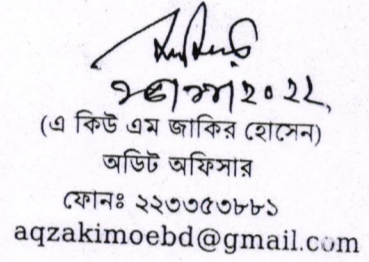 (এ কিউ এম জাকির হোসেন)
অডিট অফিসার
ফোনঃ ২২৩৩৫৩৮৮১
aqzakimoebd@gmail.com